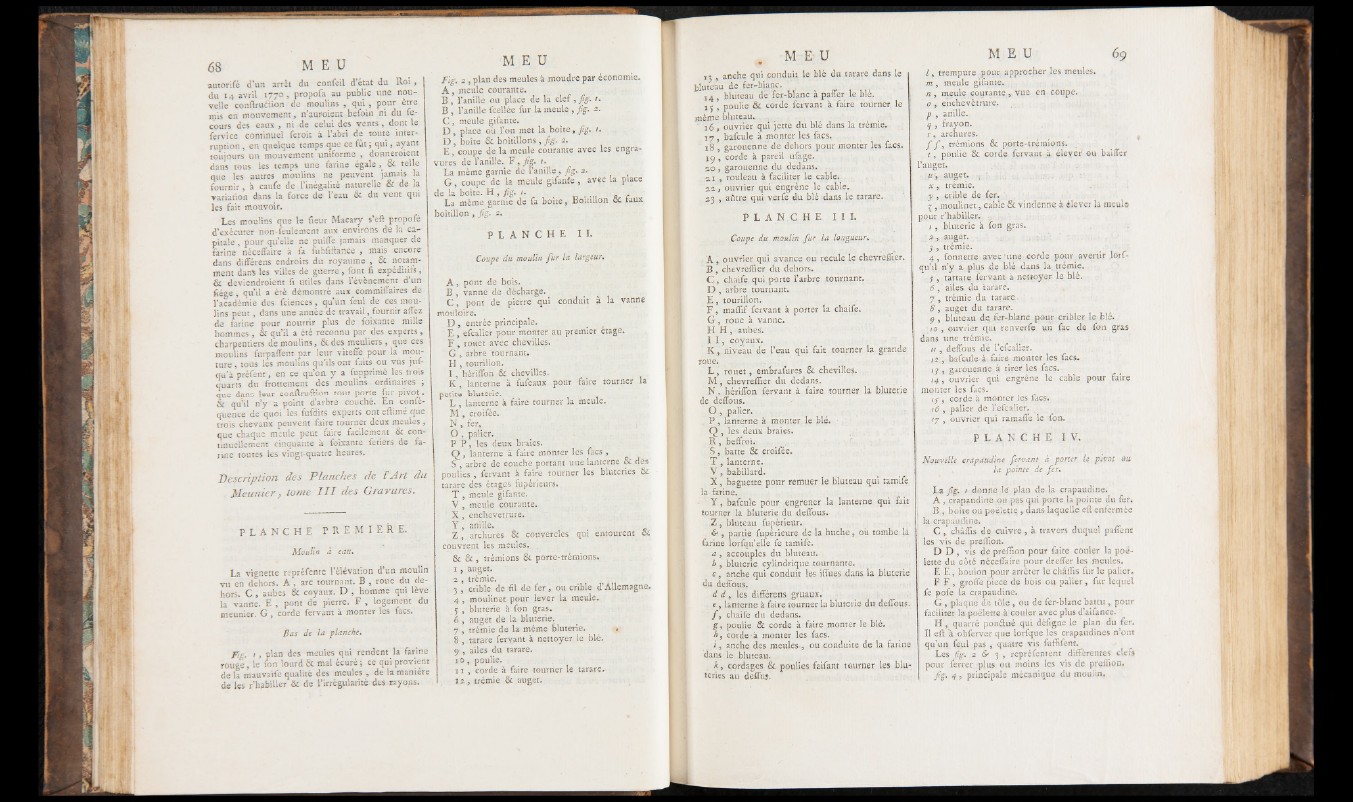 68 M E U
autorisé d'un arrêt du conseil d'état du Roi,
du 14 avril 1770, proposa au public une nou-
velle construction de moulins, qui, pour être
mis en mouvement, n'auroient besoin ni du se-
cours des eaux, ni de celui des vents, dont le
service continuel seroit à l'abri de toute inter-
ruption, en quelque temps que ce fût; qui, ayant
toujours un mouvement uniforme, donneroient
dans tous les temps une farine égale, & telle
que les autres moulins ne peuvent jamais la
fournir, à cause de l'inégalité naturelle & de la
variation dans la force de l'eau & du vent qui
les fait mouvoir.
Les moulins que le sieur Macary s'est proposé
d'exécuter non-seulement aux environs de la ca-
pitale, pour qu'elle ne puisse jamais manquer de
farine nécessaire à sa subsistance, mais encore
dans différens endroits du royaume, & notam-
ment dans les villes de guerre, sont si expéditifs,
& deviendroient si utiles dans l'évènement d'un
siège, qu'il a été démontré aux commissaires de
l'académie des sciences, qu'un seul de ces mou-
lins peut, dans une année de travail, fournir assez
de farine pour nourrir plus de soixante mille
hommes, & qu'il a été reconnu par des experts,
charpentiers de moulins, & des meûliers, que ces
moulins surpassent par leur vitesse pour la mou-
ture, tous les moulins qu'ils ont faits ou vus jus-
qu'à présent, en ce qu'on y a supprimé les trois
quarts du frottement des moulins ordinaires;
que dans leur construction tout porte sur pivot,
& qu'il n'y a point d'arbre couché. En consé-
quence de quoi les susdits experts ont estimé que
trois chevaux peuvent faire tourner deux meules,
que chaque meule peut faire facilement & con-
tinuellement cinquante à soixante setiers de fa-
rine toutes les vingt-quatre heures.
Description des Planches de l'Art du
Meunier, tome III des Gravures.
PLANCHE PREMIERE.
Moulin à eau.
La vignette représente l'élévation d'un moulin
vu en dehors. A, arc tournant. B, roue du de-
hors. C, aubes & coyaux. D, homme qui lève
la vanne. E, pont de pierre. F, logement du
meunier. G, corde servant à monter les sacs.
Bas de la planche.
Fig. 1, plan des meules qui rendent la farine
rouge, le son lourd & mal écuré; ce qui provient
de la mauvaise qualité des meules, de la manière
de les r'habiller & de l'irrégularité des rayons.
M E U
Fig. 2, plan des meules à moudre par économie.
A, meule courante.
B, l'anille ou place de la clef, fig. 1.
B, l'anille scellée sur la meule, fig. 2.
C, meule gisante.
D, place où l'on met la boite, fig. 1.
D, boite & boitillons, fig. 2.
E, coupe de la meule courante avec les engra-
vures de l'anille. F, fig. 1.
La même garnie de l'anille, fig. 2.
G, coupe de la meule gisante, avec la place
de la boite. H, fig. 1.
La même garnie de sa boite, Boitillon & faux
boitillon, fig. 2.
PLANCHE II.
Coupe du moulin sur la largeur.
A, pont de bois.
B, vanne de décharge.
C, pont de pierre qui conduit à la vanne
mouloire.
D, entrée principale.
E, escalier pour monter au premier étage.
F, rouet avec chevilles.
G, arbre tournant.
H, tourillon.
I, hérisson & chevilles.
K, lanterne à fuseaux pour faire tourner la
petite bluterie.
L, lanterne à faire tourner la meule.
M, croisée.
N, fer.
O, palier.
P P, les deux braies.
Q, lanterne à faire monter les sacs,
S, arbre de couche portant une lanterne & des
poulies, servant à faire tourner les bluteries &
tarare des étages supérieurs.
T, meule gisante.
V, meule courante.
X, enchevetrure.
Y, anille.
Z, archures & couvercles qui entourent &
couvrent les meules.
& &, trémions & porte-trémions.
1, auget.
2, trémie.
3, crible de fil de fer, ou crible d'Allemagne.
4, moulinet pour lever la meule.
5, bluterie à son gras.
6, auget de la bluterie.
7, trémie de la même bluterie.
8, tarare servant à nettoyer le blé.
9, ailes du tarare.
10, poulie.
11, corde à faire tourner le tarare.
12, trémie & auget.
M E U
13, anche qui conduit le blé du tarare dans le
bluteau de fer-blanc.
14, bluteau de fer-blanc à passer le blé.
15, poulie & corde servant à faire tourner le
même bluteau.
16, ouvrier qui jette du blé dans la trémie.
17, bascule à monter les sacs.
18, garouenne de dehors pour monter les sacs.
19, corde à pareil usage.
20, garouenne du dedans.
21, rouleau à faciliter le cable.
22, ouvrier qui engrène le cable.
23, autre qui verse du blé dans le tarare.
PLANCHE III.
Coupe du moulin sur la longueur.
A, ouvrier qui avance ou recule le chevressier.
B, chevressier du dehors.
C, chaise qui porte l'arbre tournant.
D, arbre tournant.
E, tourillon.
F, massif servant à porter la chaise.
G, roue à vanne.
H H, aubes.
I I, coyaux.
K, niveau de l'eau qui fait tourner la grande
roue.
L, rouet, embrasures & chevilles.
M, chevressier du dedans.
N, hérisson servant à faire tourner la bluterie
de dessous.
O, palier.
P, lanterne à monter le blé.
Q, les deux braies.
R, beffroi.
S, batte & croisée.
T, lanterne.
V, babillard.
X, baguette pour remuer le bluteau qui tamise
la farine.
Y, bascule pour engrener la lanterne qui fait
tourner la bluterie du dessous.
Z, bluteau supérieur.
&, partie supérieure de la huche, où tombe la
farine lorsqu'elle se tamise.
a, accouples du bluteau.
b, bluterie cylindrique tournante.
c, anche qui conduit les issues dans la bluterie
du dessous.
d d, les différens gruaux.
e, lanterne à faire tourner la bluterie du dessous.
f, chaise du dedans.
g, poulie & corde à faire monter le blé.
h, corde à monter les sacs.
i, anche des meules, ou conduite de la farine
dans le bluteau.
k, cordages & poulies faisant tourner les blu-
teries au dessus.
M E U 69
l, trempure pour approcher les meules.
m, meule gisante.
n, meule courante, vue en coupe.
o, enchevêtrure.
p, anille.
q, frayon.
r, archures.
ss, trémions & porte-trémions.
t, poulie & corde servant à élever ou baisser
l'auget.
u, auget.
x, trémie.
y, crible de fer.
z, moulinet, cable & vindenne à élever la meule
pour r'habiller.
1, bluterie à son gras.
2, auget.
3, trémie.
4, sonnette avec une corde pour avertir lors-
qu'il n'y a plus de blé dans la trémie.
5, tartare servant à nettoyer le blé.
6, ailes du tarare.
7, trémie du tarare.
8, auget du tarare.
9, bluteau de fer-blanc pour cribler le blé.
10, ouvrier qui renverse un sac de son gras
dans une trémie.
11, dessous de l'escalier.
12, bascule à faire monter les sacs.
13, garouenne à tirer les sacs.
14, ouvrier qui engrène le cable pour faire
monter les sacs.
15, corde à monter les sacs.
16, palier de l'escalier.
17, ouvrier qui ramasse le son.
PLANCHE IV.
Nouvelle crapaudine servant à porter le pivot ou
la pointe de fer.
La fig. 1 donne le plan de la crapaudine.
A, crapaudine ou pas qui porte la pointe du fer.
B, boite ou poëlette, dans laquelle est enfermée
la crapaudine.
C, châssis de cuivre, à travers duquel passent
les vis de pression.
D D, vis de pression pour faire couler la poë-
lette du côté nécessaire pour dresser les meules.
E E, boulon pour arrêter le châssis sur le palier.
F F, grosse pièce de bois ou palier, sur lequel
se pose la crapaudine.
G, plaque de tôle, ou de fer-blanc battu, pour
faciliter la poëlette à couler avec plus d'aisance.
H, quarré ponctué qui désigne le plan du fer.
Il est à observer que lorsque les crapaudines n'ont
qu'un seul pas, quatre vis suffisent.
Les fig. 2 & 3, représentent différentes clefs
pour serrer plus ou moins les vis de pression.
fig. 4, principale mécanique du moulin,